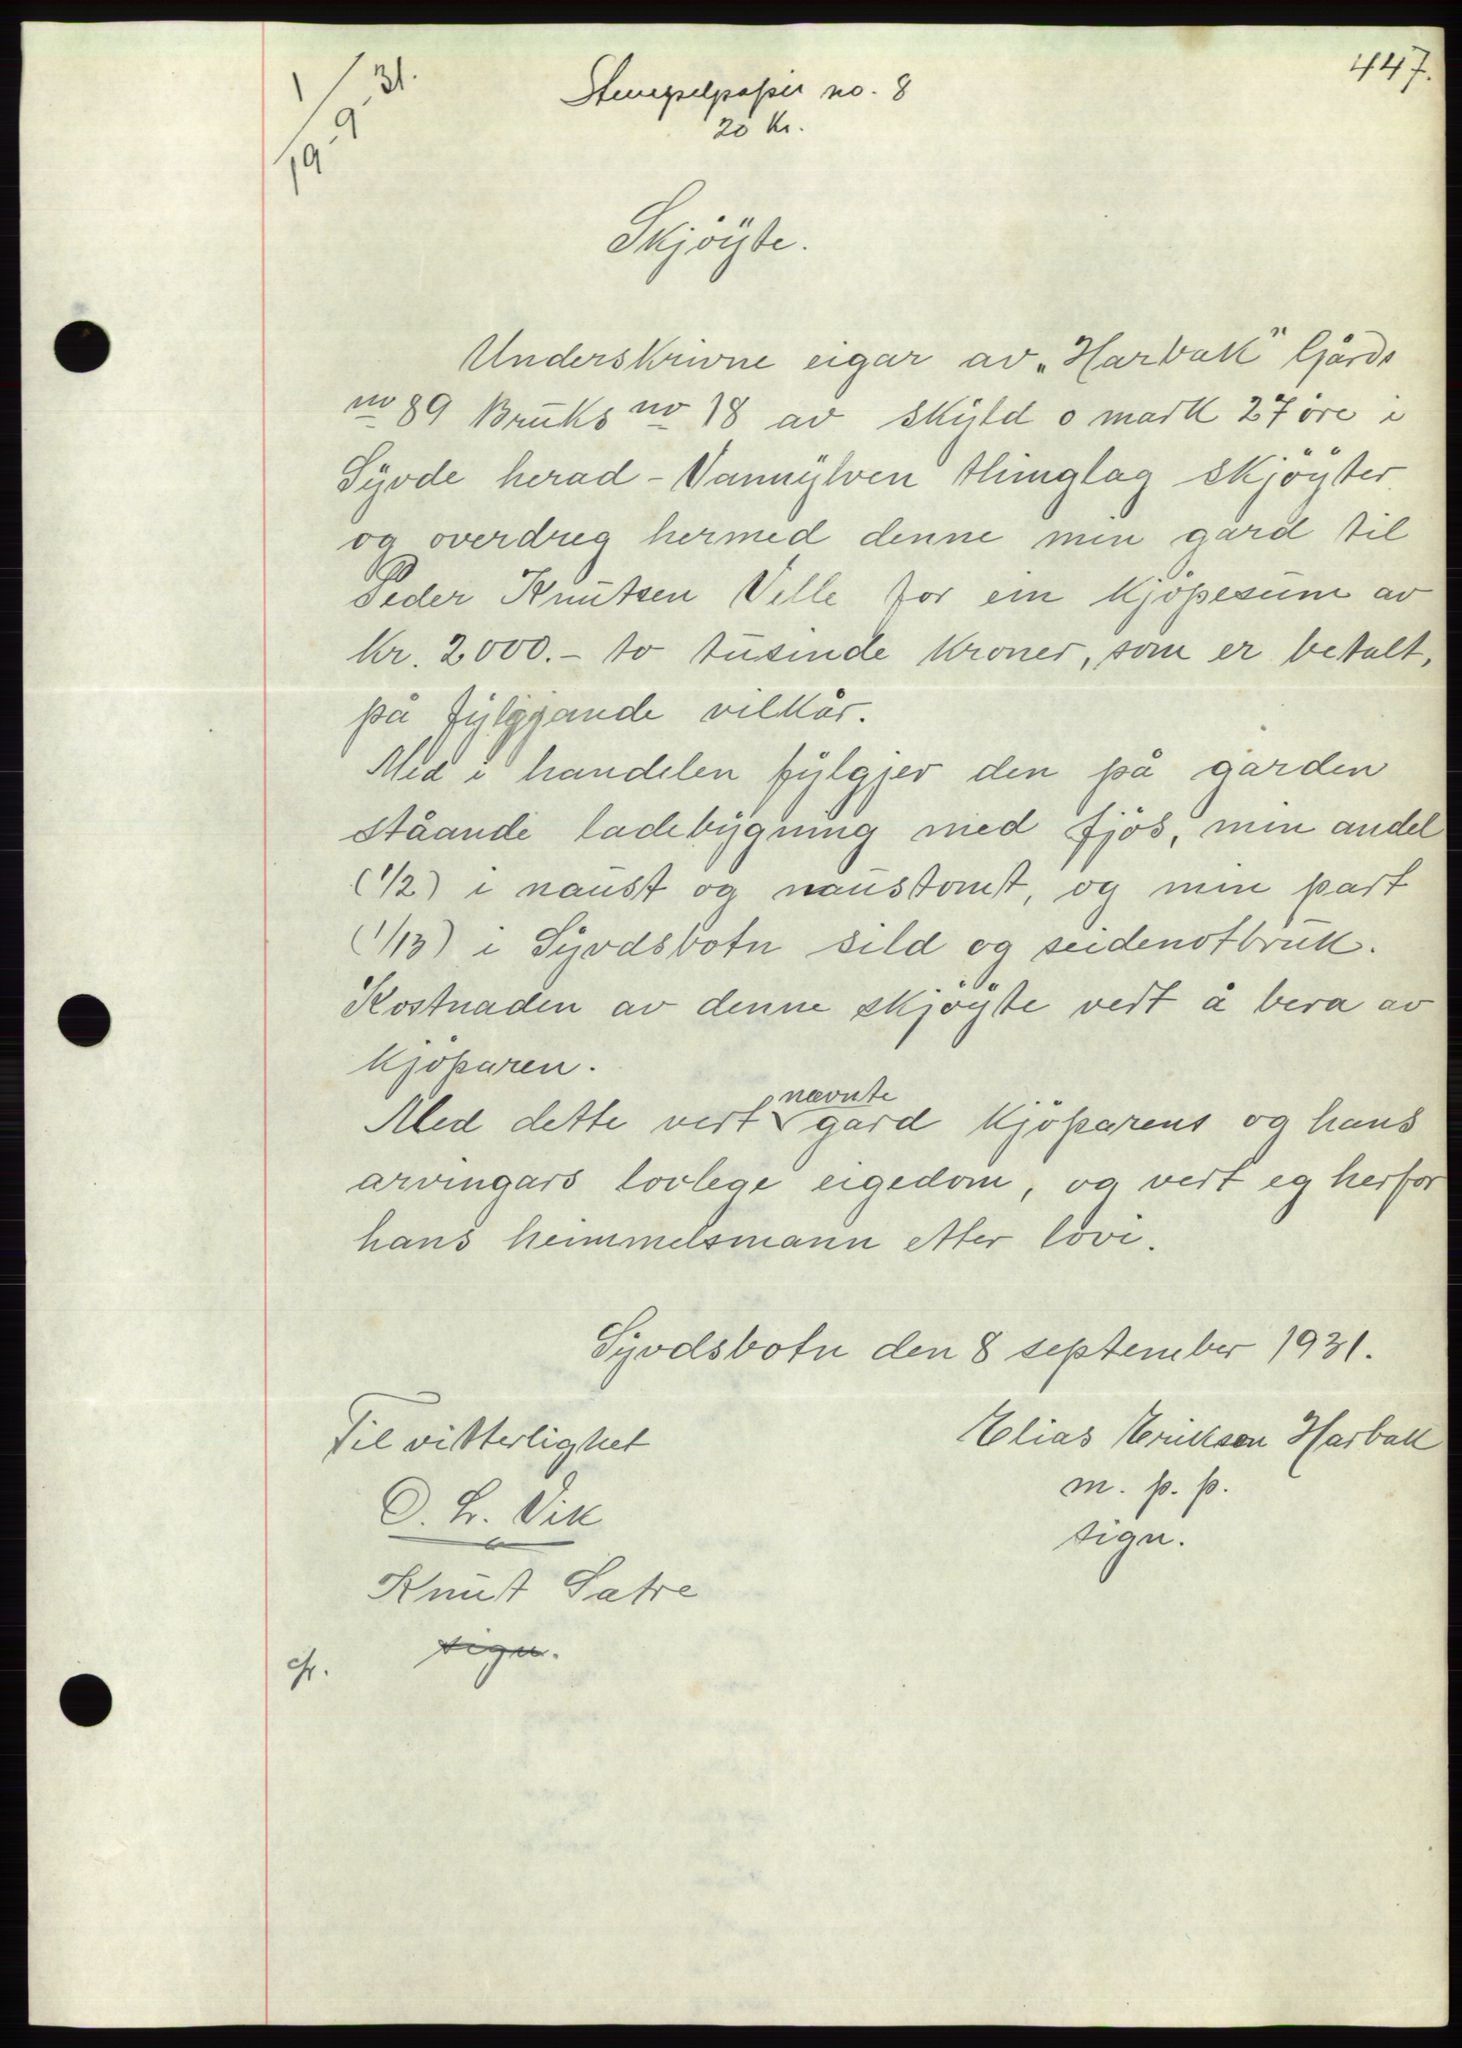 447.
1/19-9-31.
Stempelpapir no. 8
20 Kr.
Skjöyte.
Underskrivne eigar av „Harbak" Gårds
no 89 Bruks no 18 av skyld 0 mark 27 öre i
Syvde herad - Vannylven thinglag skjöyter
og overdreg hermed denne min gard til
Peder Knutsen Velle for ein kjöpesum av
Kr. 2000.- to tusinde kroner, som er betalt,
på fylgjande vilkår.
Med i handelen fylgjer den på garden
ståande ladebygning med fjös, min andel
(1/2) i naust og naustomt, og min part
(1/13) i Syvdsbotn sild og seidenotbruk.
Kostnaden av denne skjöyte vert å bera av
kjöparen.
Med dette vert nævnte gard kjöparens og hans
arvingars lovlege eigedom, og vert eg herfor
hans heimmelsmann etter lovi.
Syvdsbotn den 8 september 1931.
Til vitterlighet
Elias Erikson Harbak
m. p. p.
sign.
O. L. Vik
Knut Satre
sign.